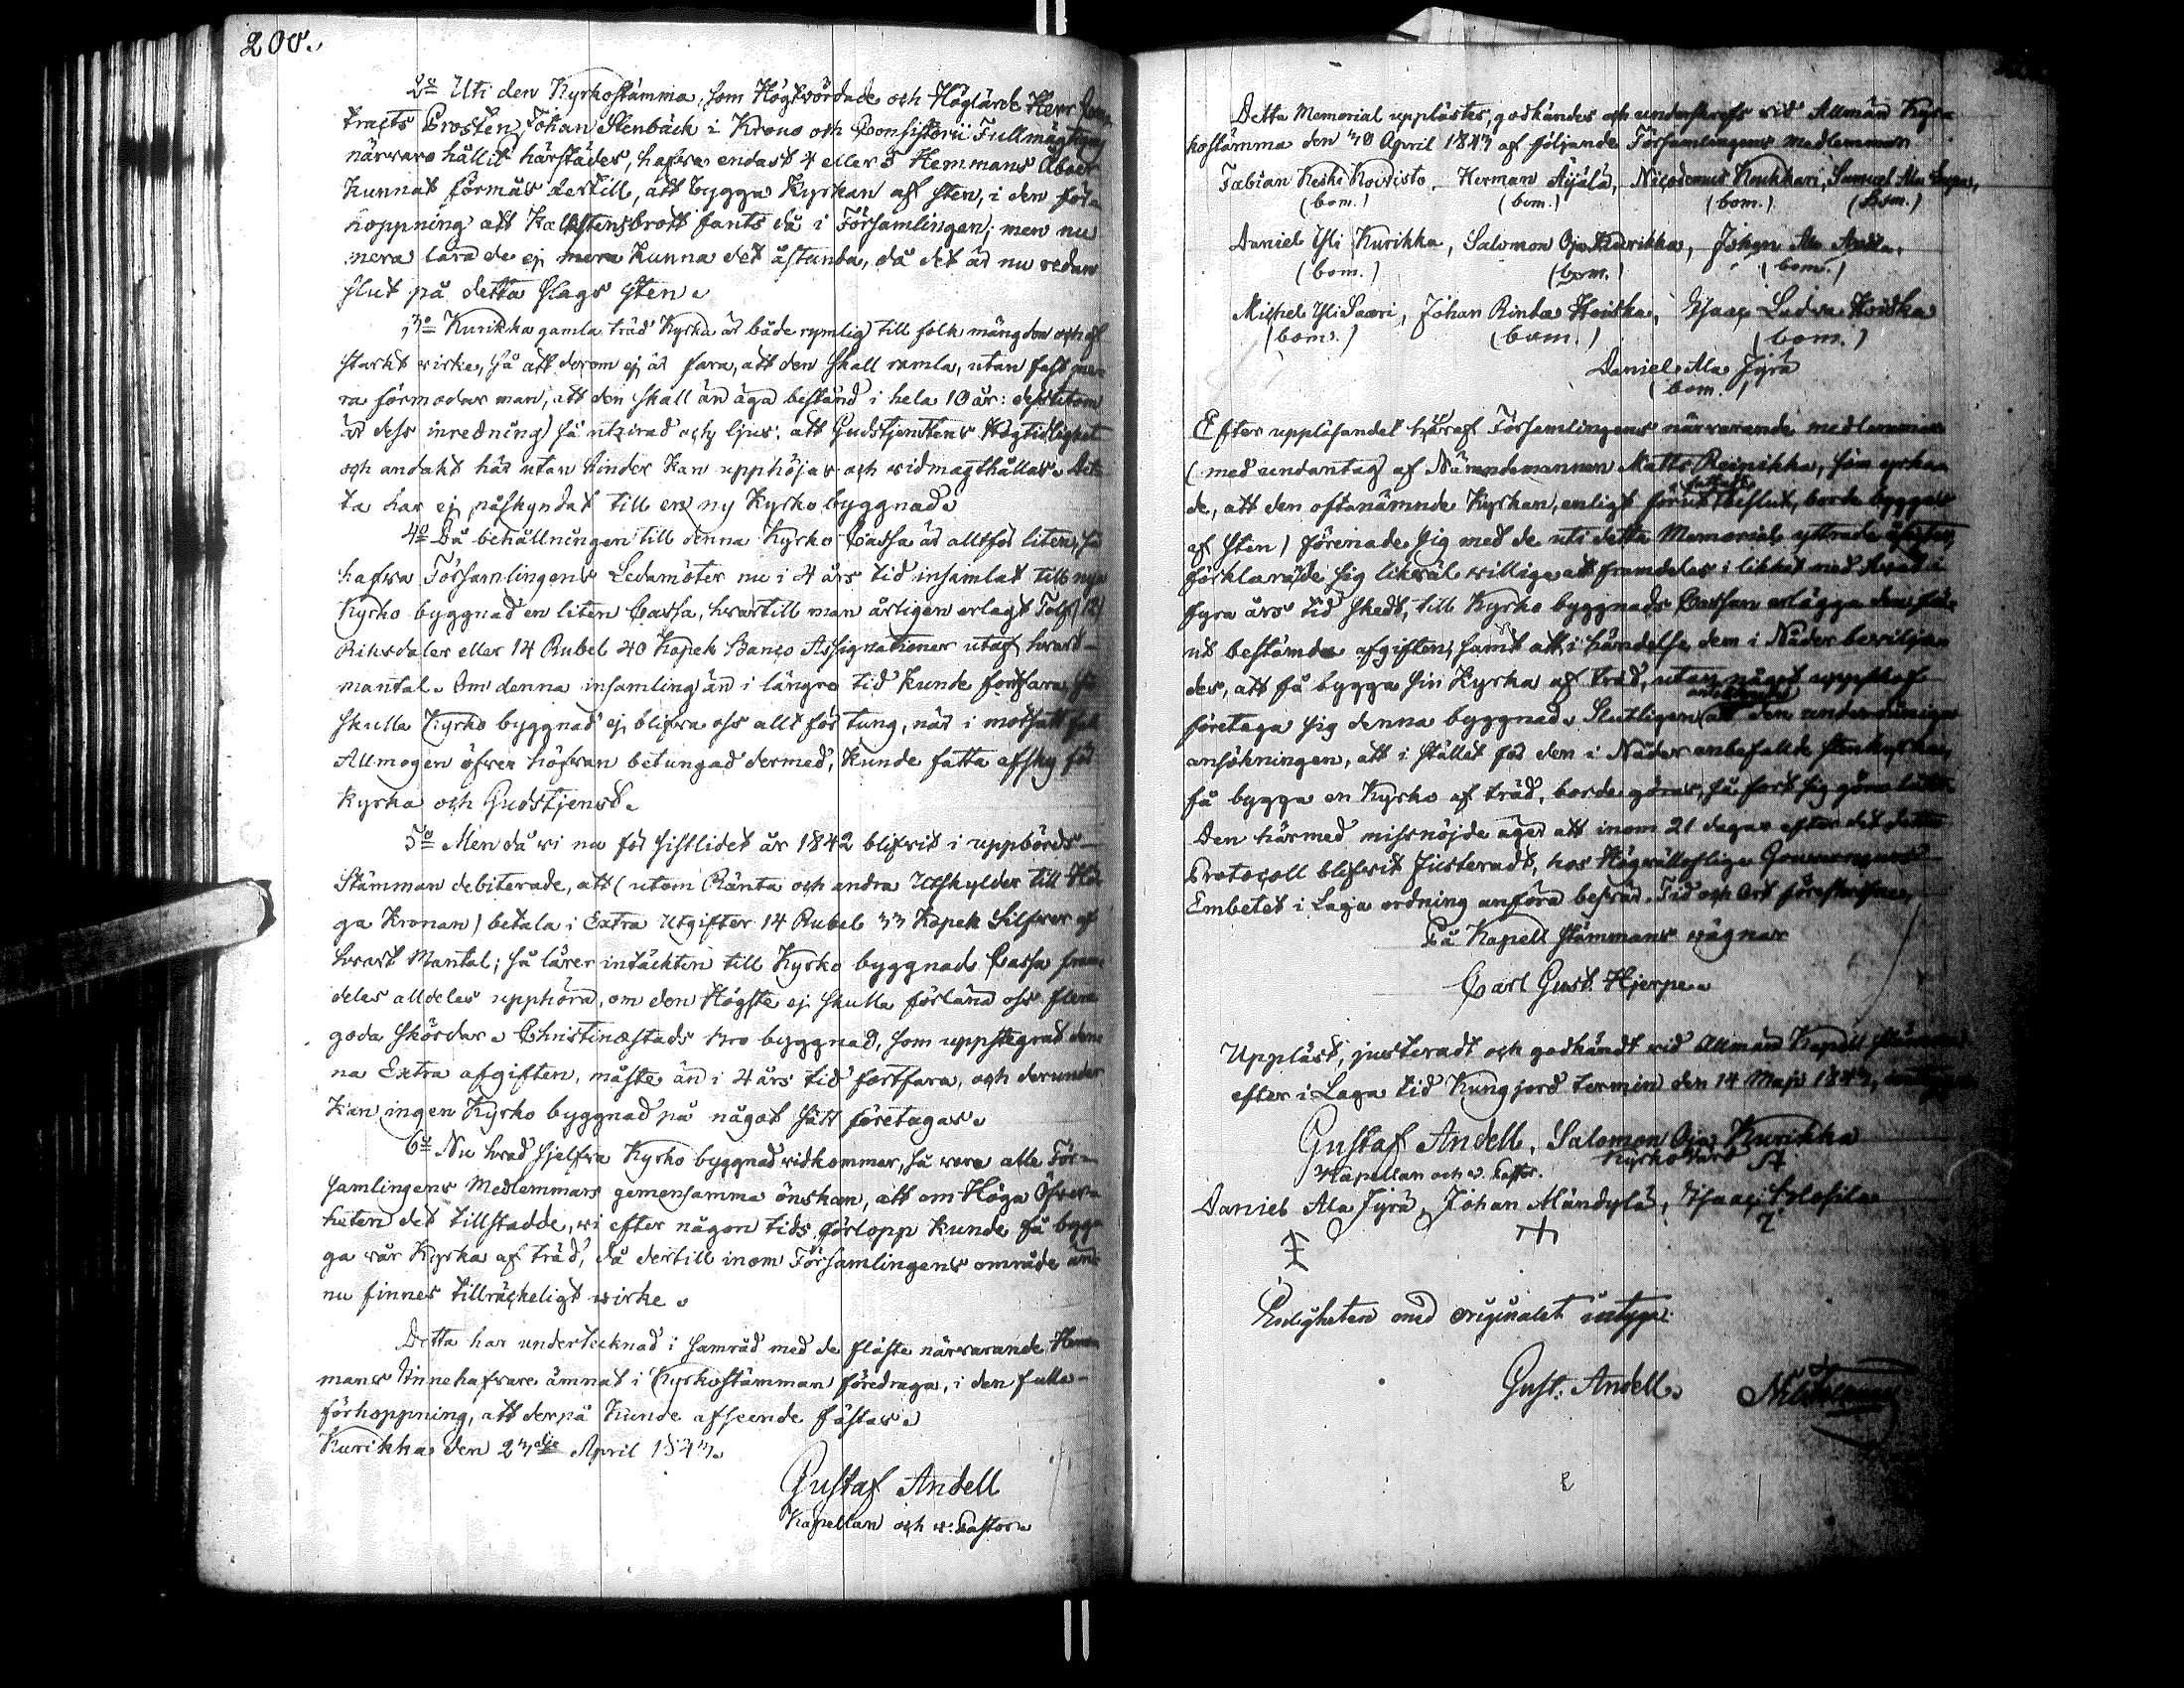 200.
2o Uti den Kyrkostämma, som Högtvördade och Höglärde Herr Con
tracts Prosten Johan Stenbäck i Krono och Consistorii Fullmägtigs
närvaro hållit härstädes, hafva endast 4 eller 5 Hemmans Åboer
kunnat förmås dertill, att bygga Kyrkan af sten, i den för-
hoppning att Kalkstensbrott fants då i Församlingen; men nu
mera lära de ej mera kunna det åstunda, då det är nu redan
slut på detta slags sten.
3o Kurikka gamla träd Kyrka är både rymlig till folkmängden och af
starkt virke, så att derom ej är fara, att den skall ramla, utan fast me-
ra förmodar man, att den skall än äga bestånd i hela 10 år: dessutom
är dess inredning så utzirad och ljus, att Gudstjenstens Högtidlighet
och andakt här utan hinder kan upphöjas och vidmagthållas. Det-
ta har ej påskyndat till en ny Kyrko byggnad.
4o Då behållningen till denna Kyrko Cassa är alltför liten, så
hafva Församlingens Ledamöter nu i 4 års tid insamlat till nya
Kyrko byggnad en liten Cassa, hvartill man årligen erlagt Tolf (12)
Riksdaler eller 14 Rubel 40 Kopek Banco Assignationer utaf hvart-
mantal. Om denna insamling än i längre tid kunde fortfara, så
skulle Kyrko byggnad ej blifva oss allt för tung, när i motsatt fall
Allmogen öfver höfvan betungad dermed, kunde fatta afsky för
Kyrka och Gudstjenst.
5o Men då vi nu för sistlidet år 1842 blifvit i uppbörds-
Stämman debiterade, att (utom Ränta och andra Utskylder till Hö-
ga Kronan) betala i Extra Utgifter 14 Rubel 33 Kopek Silfver af
hvart Mantal; så lärer intäckten till Kyrko byggnads Cassa fram-
deles alldeles upphöra, om den Högste ej skulle förläna oss flera
goda skördar. Christinæstads bro byggnad, som uppstegrat den-
na Extra afgiften, måste än i 4 års tid fortfara, och derunder
kan ingen Kyrko byggnad på något sätt företagas.
6o Nu hvad sjelfva Kyrko byggnad vidkommer, så vore alle För-
samlingens Medlemmars gemensamma önskan, att om Höga Öfver-
heten det tillstadde, vi efter någon tids förlopp kunde få byg-
ga vår Kyrka af träd, då dertill inom Församlingens område än
nu finnes tillräckeligt virke.
Detta har undertecknad i samråd med de fläste närvarande Hem-
mans Innehafvare ämnat i Kyrkostämman föredraga, i den fulla-
förhoppning, att derpå kunde afseende fästas.
Kurikka den 23dje April 1843.
Gustaf Andell
Kapellan och v. Pastor.
Detta Memorial upplästes, godkändes och underskrefs vid Allmän Kyr-
kostämma den 30 April 1843 af följande Församlingens medlemmar
Fabian Keski Koivisto, Herman Äijälä, Nicodemus Koukkari, Samuel Ala
(bom.) (bom.) (bom.) (bom.)
Daniel Yli Kurikka, Salomon Oja Kurikka, Johan Ala
(bom.) (bom.) (bom.)
Michel Yli Saari, Johan Rinta Koiska, Isaac Ladva Koiska
(bom.) (bom.) (bom.)
Daniel Ala Jyrä
(bom.)
Efter uppläsandet häraf Församlingens närvarande medlemmar
(med undantag af Nämndemannen Matts Reinikka, som yrka-
de, att den oftanämnde Kyrkan, enligt förut fattadt beslut, borde byggas
af sten) förenade sig med de uti detta Memorial yttrade åsigter,
förklarade sig likväl villige att framdeles i likhet med hvad i
fyra års tid skedt, till Kyrko byggnads Cassan erlägga den för-
ut bestämda afgiften, samt att i händelse dem i Nåder beviljas
des, att få bygga sin Kyrka af träd, utan något uppskof
företaga sig denna byggnad. Slutligen att den underdåniga
ansökningen, att i stället för den i Nåder anbefallde stenkyrkan,
få bygga en Kyrko af träd, borde göras, så fort sig göra lät.
Den härmed missnöjde äger att inom 21 dagar efter det detta
Protocoll blifvit justeradt, hos Högvällofliga Gouverneurs
Embetet i Laga ordning anföra besvär. Tid och Ort föreskrifne,
På Kapell stämmans vägnar
Carl Gust. Hjerpe.
Uppläst, justeradt och godkändt vid Allmän Kapell stämma
efter i Laga tid kungjord termin den 14 Maji 1843,
Gustaf Andell, Salomon Oja Kurikka
Kapellan och v. Pastor. Kyrkovärd
Daniel Ala Jyrä, Johan Mändylä, Isaac
Enligheten med originalet intyga:
Gust. Andell.